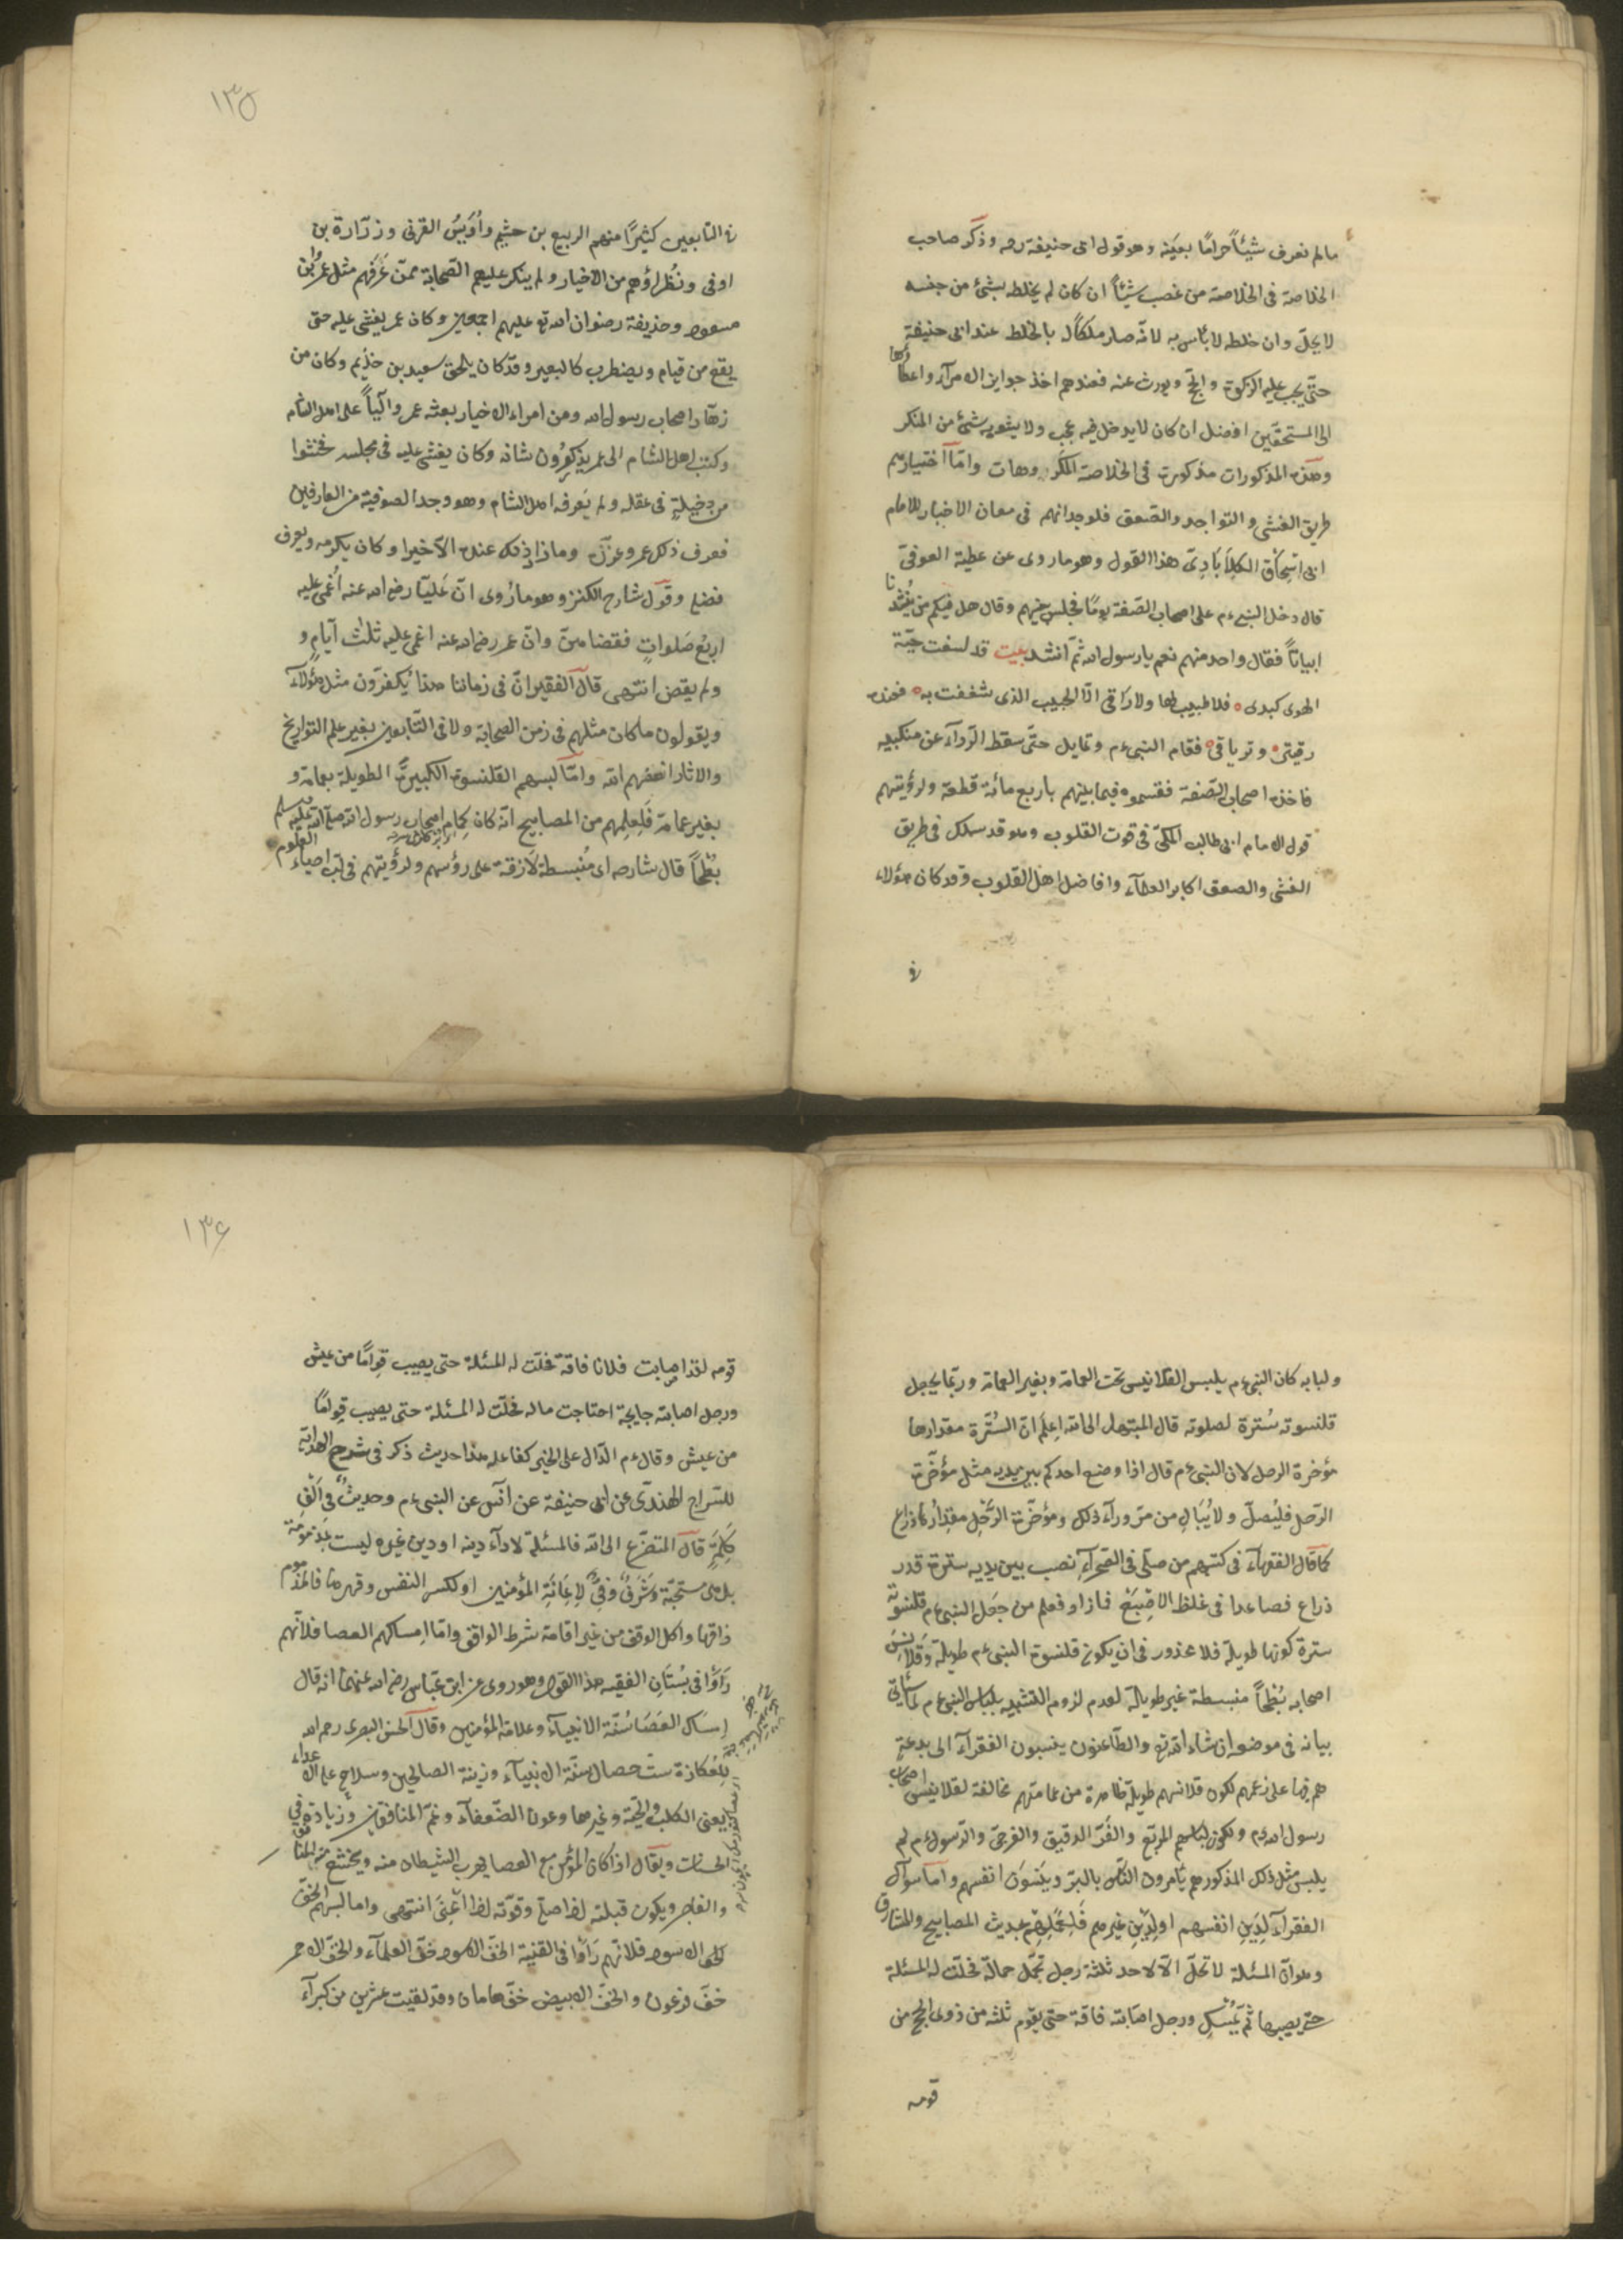 مالم نعرف شيئاً حرامًا بعينه وهو قول ابى حنيفة رحه وذكر صاحب
الخلاصة فى الخلاصة من غصب شيئاً ان كان لم يخلطه بشئ من جنسه
لا يحلّ وان خلطه لا بأس به لانّه صار ملكاً له بالخلط عند ابى حنيفة
حتّى يجب عليه الزكوة والحجّ ويورث عنه فعندهم اخذ جوايز الامرآء واعطاؤها
الى المستحقّين افضل ان كان لا يدخل فيه عجب ولا يشوبه شئ من المنكر
وهذه المذكورات مذكورة فى الخلاصة المكروهات وامّا اختيارهم
طريق الغشى والتواجد والصعق فلوجدانهم فى معان الاخبار للامام
ابى اسحاق الكلاَبادىّ هذا القول وهو ما روى عن عطية العوفىّ
قال دخل النبى ءم على اصحاب الصّفة يومًا فجلس بينهم وقال هل فيكم من يُنشدنا
ابياتاً فقال واحد منهم نعم يا رسول الله ثمّ انشد بيت قد لسعت حيّة
الهوى كبدى ه فلا طبيب لها ولا راقى الّا الحبيب الذى شغفت به ه فعنده
رقيتى ه وترياقى ه فقام النبى ءم وتمايل حتّى سقط الرّدآء عن منكبيه
فاخذه اصحاب الصّفة فقسموه فيما بينهم باربع مائة قطعة ولرؤيتهم
قول الامام ابى طالب المكّىّ فى قوت القلوب وهو قد سلك فى طريق
الغشى والصعق اكابر العلمآء وافاضل اهل القلوب وقد كان هؤلاء
فى
١٣٥
فى التابعين كثيرًا منهم الربيع بن خثيم وأُوَيسُ القرنى وزرّارة بن
اوفى ونُظراؤهم من الاخيار ولم ينكر عليهم الصّحابة ممّن عَرَفهم مثل عمر وابن
مسعود وحذيفة رضوان الله تع عليهم اجمعين وكان عمر يغشى عليه حتى
يقع من قيام ويضطرب كالبعير وقد كان يلحق سعيد بن خذيم وكان من
زهّاد اصحاب رسول الله ومن امراء الاخيار بعثه عمر والياً على اهل الشام
وكتب اهل الشام الى عمر يذكرون شانه وكان يغشى عليه فى مجلسه فخشوا
من دخيلةٍ فى عقله ولم يعرفه اهل الشام وهو وجد الصوفية من العارفين
فعرف ذلك عمر وعزّل وماذا ذلك عنده الّا خيرا وكان يكرمه ويعرف
فضله وقول شارح الكنز وهو ما رُوى انّ عَليّا رضى الله عنه أُغمى عليه
اربع صَلواتٍ فقضاهنّ وانّ عمر رضى الله عنه اغمى عليه ثلٰث آيام و
ولم يقض انتهى قال الفقير انّ فى زماننا هذا يُكفرّون مثل هؤُلآء
ويقولون ما كان مثلهم فى زمن الصحابة ولا فى التّابعين بغير علم التواريخ
والاثار انصفهم الله وامّا لبسهم القلنسوة الكبيرة الطويلة بعمامة و
بغير عمامة فَلِعلِمهم من المصابيح انّه كان كِمام اصحاب رسول الله صلى الله عليه وسلم
بُطْحاً قال شارحه اى مُنبسطة لازقة على رؤسهم ولرؤيتهم فى لبّ احياء العلوم
ولبابه كان النبى ءم يلبس القلانيس تحت العمامة وبغير العمامة وربّما يجعل
قلنسوته سُترة لصلوته قال المبتهل الى الله اِعلَم انّ السُّترة مقدارها
مؤخرة الرحل لان النبى ءم قال اذا وضع احدكم بين يديه مثل مؤخّرة
الرّحل فليُصلّ ولا يُبَالِ من مرّ ورآء ذلك ومؤخّرة الرَّحْل مقِدارُها ذراع
كما قال الفقهآء فى كتبهم من صلّى فى الصّحرآءِ نصب بين يديه سترة قدر
ذراع فصاعدا فى غلظ الاِصْبَعْ فما زاد فعلم من جعل النبى ءم قلنسوته
سترة كونها طويلة فلا محذور فى ان يكون قلنسوة النبى ءم طويلة وقَلاَنِسَ
اصحابه بُطْحاً منبسطة غير طويلة لعدم لزوم التشبيه بلباس النبى ءم كما يأتى
بيانه فى موضعه ان شاء الله ته والطّاعنون ينسبون الفقرآء الى بدعةٍ
هم فيها على زعمهم لكون قلانسهم طويلة ظاهرة من عمامتهم مخالفة لقلانيس اصحاب
رسول الله ءم ولكون لباسهم المربّع والفُرّ الدقيق والفرجىّ والرّسول ءم لم
يلبس مثل ذلك المذكور هم يَامرون النّاس بالبرّ ويَنسَونَ انفسهم وامّا سوآل
الفقرآء لِدَينِ انفسهم او لِدَيْنِ غيرهم فَلِعَملِهِم بحديث المصابيح والمشارق
وهو انّ المسئلة لا تحلّ الّا لاحد ثلثة رجل تحمّل حمالة فحلّت له المسئلة
حتى يصيبها ثمّ يمْسك ورجل اصَابته فاقة حتى يقوم ثلثه من ذوى الحجى من
قومه
١٣٦
قومه لقد اصابت فلانا فاقة فحلّت له المسئلة حتى يصيب قِوامًا من عيش
ورجل اصابته جايحة اجتاحت ماله فحلّت له المسئلة حتى يصيب قِوامًا
من عيش وقال ءم الدّال على الخير كفاعله هذا حديث ذكر فى شرح الهداية
للسراج الهندىّ عن ابى حنيفة عن انَس عن النبى ءم وحديثٌ فى اَلْفِ
كَلِمَةٍ قال المتضرّع الى الله فالمسئلة لادآء دينه او دين غيره ليست بمذمومة
بل هى مستحبّة وَشَرَفٌ لِاِعَانَةِ المؤمنين او لكسر النفس وقهرها فالمذموم
ذاقها واكل الوقف من غير اقامة شرط الواقف وامّا اِمساكهم العصا فلانّهم
رَاَوْا فى بُستَانِ الفقيه هذا القول وهو روى عن ابن عبّاس رضى الله عنهما انه قال
اِمسَاك العَصَا سُنّة الانبيآء وعلامة المؤمنين وقال الحسن البصرى رحمه الله
لِلعُكازة ست خصال سنّة الانبيآء وزينة الصالحين وسلاح على الاعداء
يعنى الكلب والحيّة وغيرها وعون الضّعفآء وغمّ المنافقين وزيادة فى
الحسنات ويقال اذا كان المؤمن مع العصا يهرب الشيطان منه ويخشع منه المنافق
والفاجر ويكون قبلته اذا صلّى وقوّته اذا اَعْيَىَ انتهى واما لبسهم الخفّ
الاسود فلانّهم رَاَوْا فى القنية الخفّ الاسود خفّ العلمآء والخفّ الاحمر
خفّ فرعون والخفّ الابيض خفّ هامان وقد لقيت عشرين من كبرآء